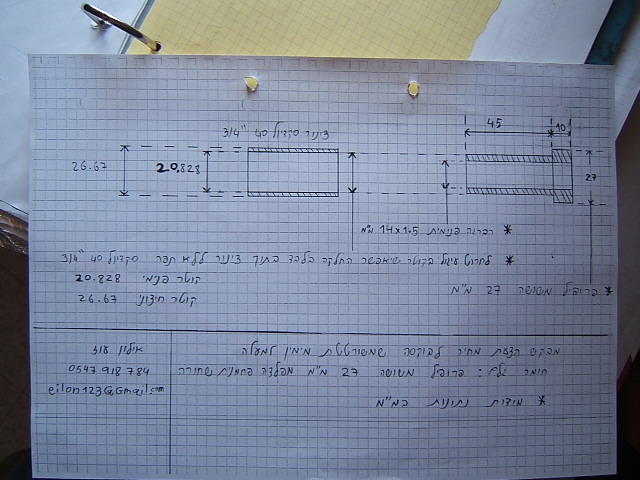 45
10
צינור סקדיול 40 "3/4
26.67
20.828
27
* הברגה פנימית 14x1.5 מ"מ
* לחרוט עיגול בקוטר שיאפשר החלקה בלבד בתוך צינור ללא תפר סקדיול 40 "3/4
קוטר פנימי 20.828
קוטר חיצוני 26.67
* פרופיל משושה 27 מ"מ
מבקש הצעת מחיר לבוקסה שמשורטטת מימין למעלה
חומר גלם: פרופיל משושה 27 מ"מ מפלדה פחמנית שחורה
* מידות נתינות במ"מ
אילון עוז
0547 918 784
eilon123@gmail.com